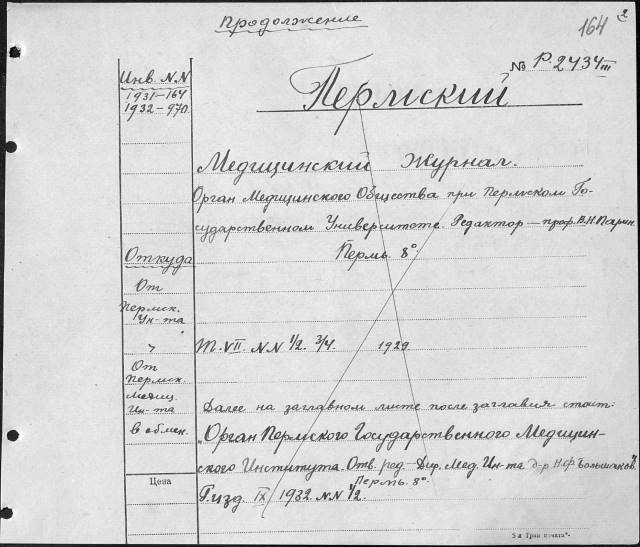 Продолжение
164 2
№ Р.2434 III
Инв. NN
1931-164
1932-970
Пермский
Медицинский Журнал.
Орган Медицинского Общества при Пермском Го-
сударственном Университете. Редактор - проф. В.Н. Парин.
Откуда
Пермь. 8°.
От
Пермск.
Ун-та
"
Т. VII. NN 1/2. 3/4. 1929.
От
Пермск.
Медиц.
Ин-та
Далее на заглавном листе после заглавия стоит:
В обмен.
„Орган Пермского Государственного Медицин-
ского Института. Отв. ред. - Дир. Мед. Ин-та д-р Н.Ф. Большаков".
Цена
Пермь. 8°.
Г. изд. IX 1932. NN 1/2.
5-я Гран печати".